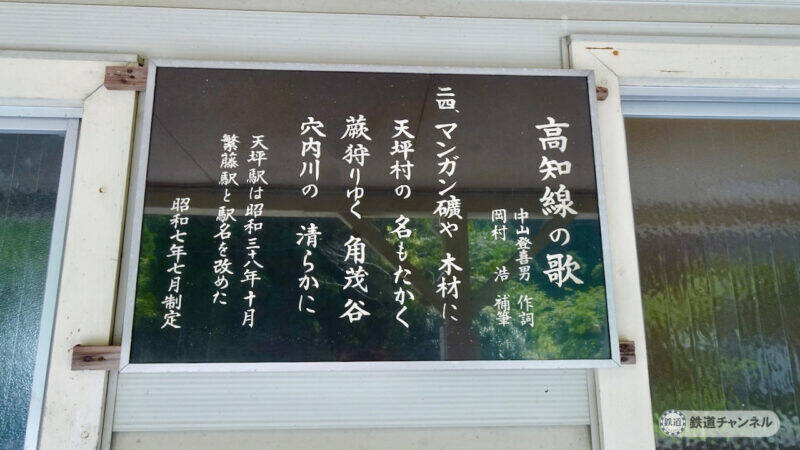 高知線の歌
中山登喜男 作詞
岡村 浩 補筆
二四、マンガン礦や 木材に
天坪村の 名もたかく
蕨狩りゆく 角茂谷
穴内川の 清らかに
天坪駅は昭和三十八年十月
繁藤駅と駅名を改めた
昭和七年七月制定
鉄道
鉄道チャンネル